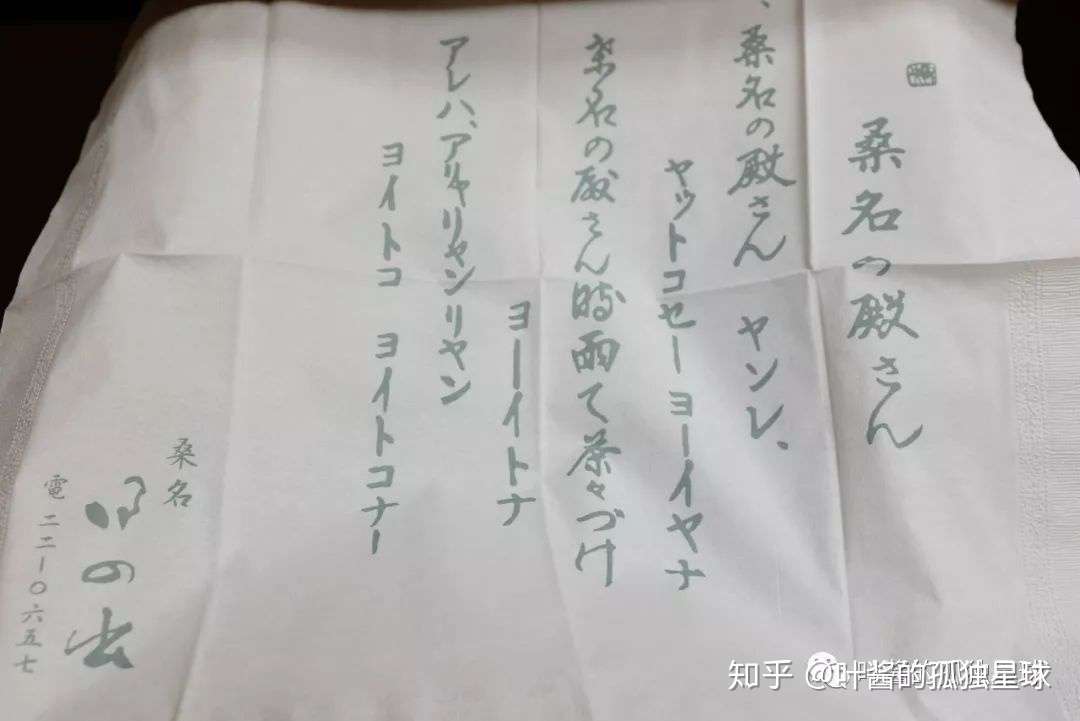 桑名の殿さん
、桑名の殿さん ヤンレ、
ヤットコセー ヨーイヤナ
桑名の殿さん時雨て茶々づけ
ヨーイトナ
アレハ、アリャリャンリャン
ヨイトコ ヨイトコナー
桑名
日の出
電 二二-〇六五七
知乎 @叶酱的孤独星球